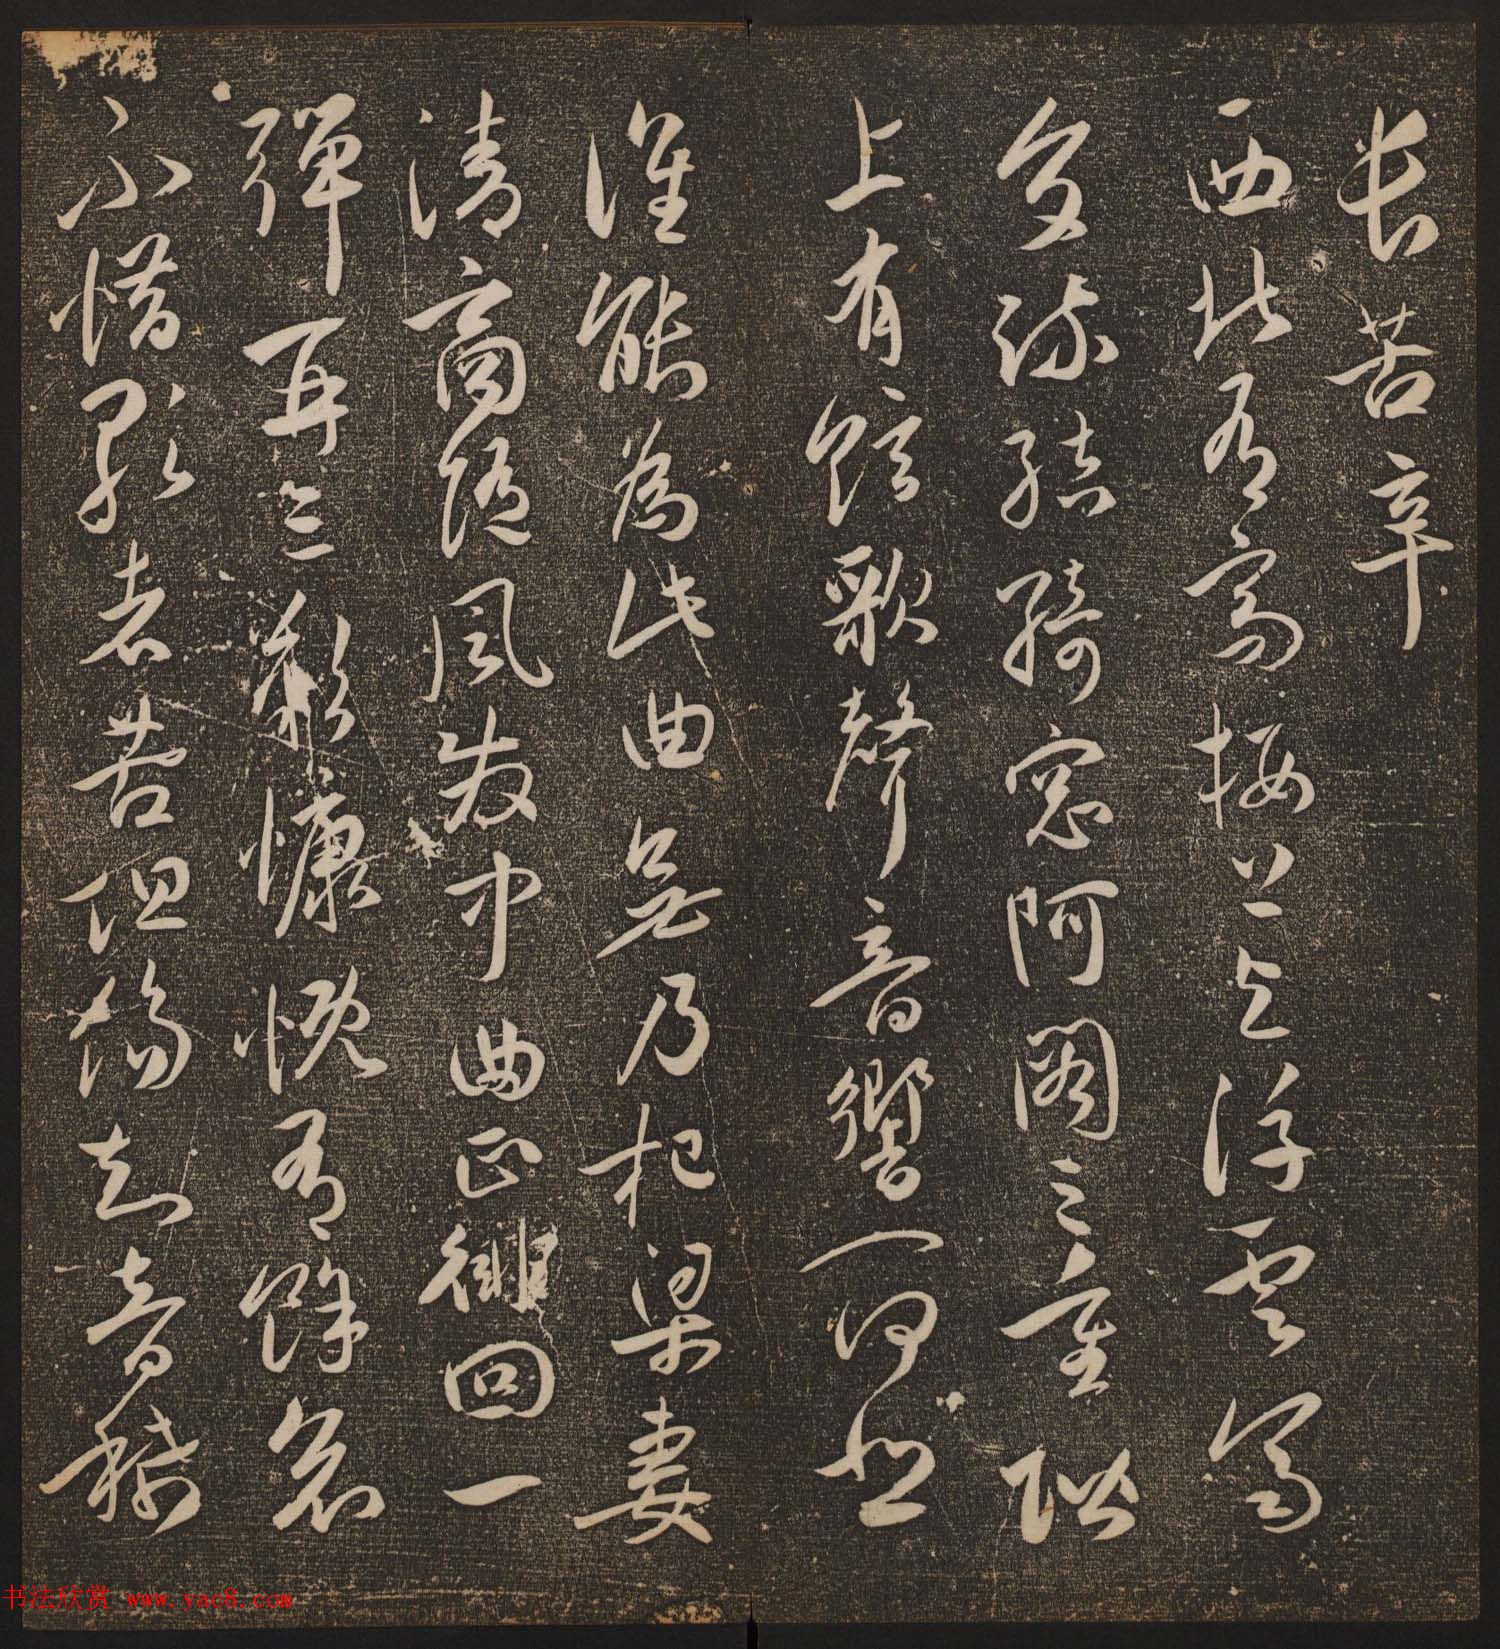 长苦辛
西北有高楼上与浮云高
交疏结绮窗阿阁三重阶
上有弦歌声音响一何悲
谁能为此曲无乃杞梁妻
清商随风发中曲正徘回一
弹再三叹慷慨有馀哀
不惜歌者苦但伤知音稀
书法欣赏 www.yac8.com